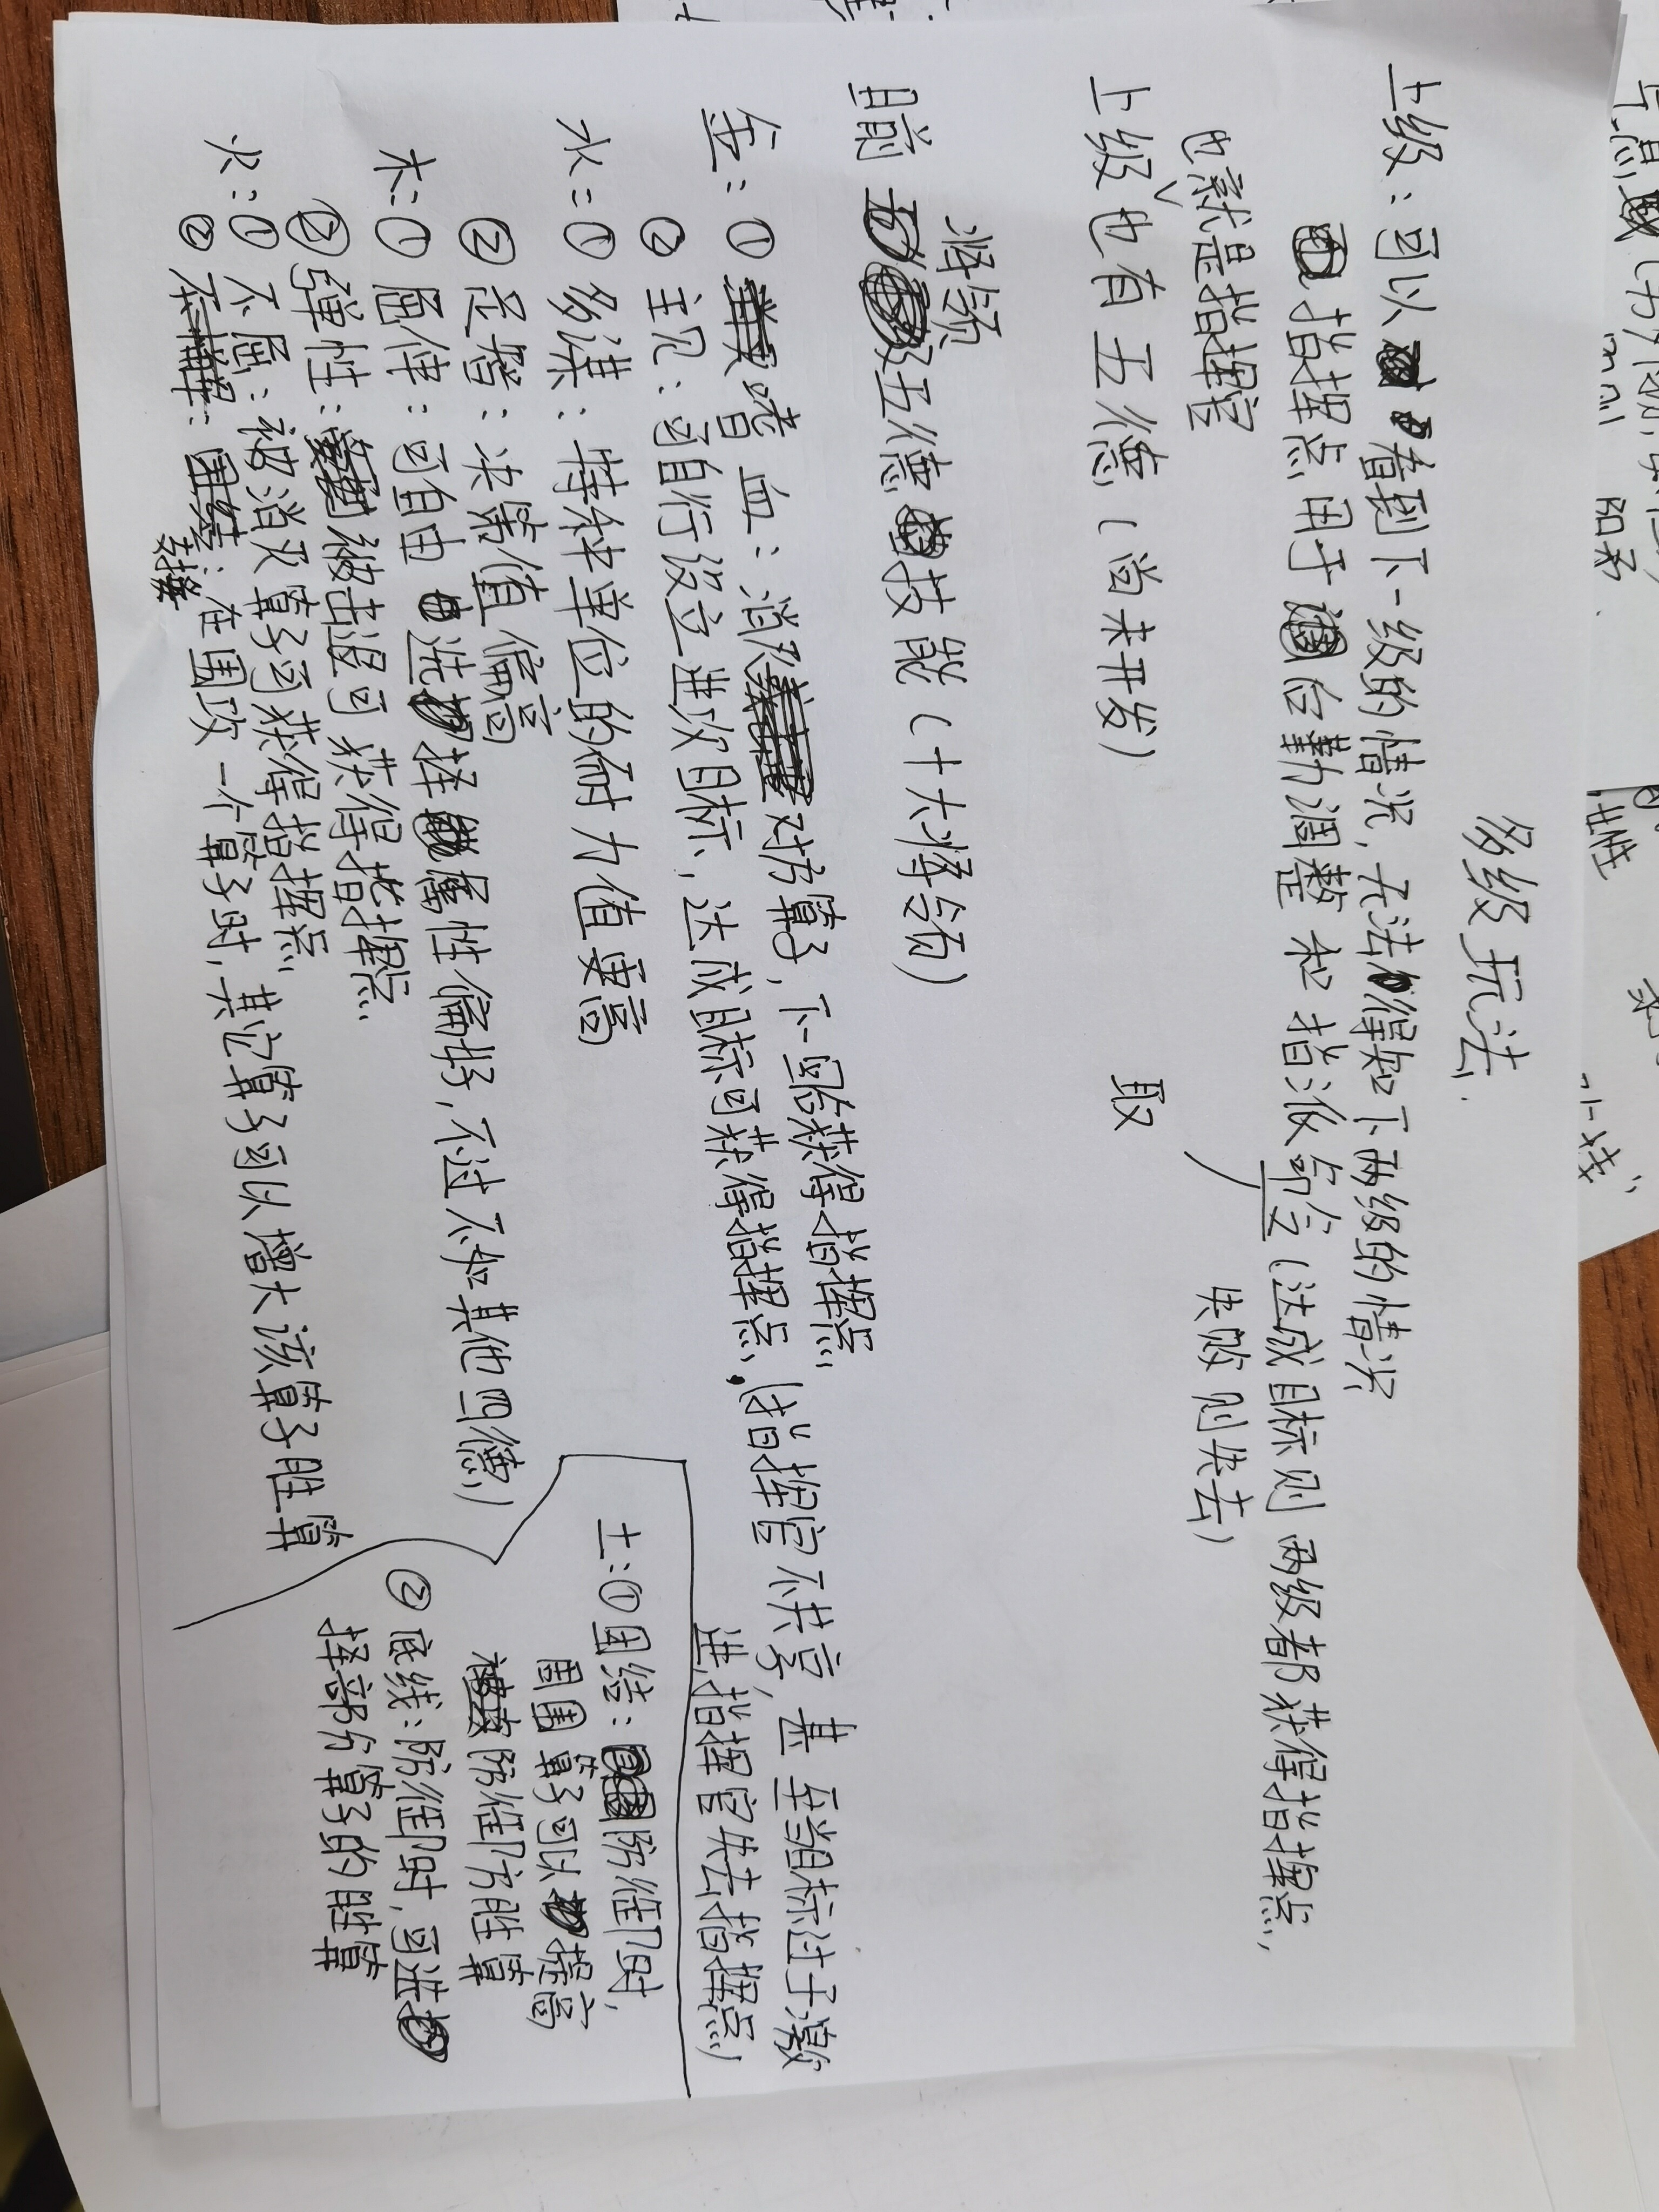 多级玩法
上级：可以看到下一级的情况，无法得知下两级的情况
指挥点用于位勤调整和指派命令（达成目标则两级都获得指挥点，
失败则失去）
也就是指挥官
上级也有五德（尚未开发）
取
将领
目前五德技能（十大将领）
金：①嗜血：消灭对方算子，下回获得指挥点
②主见：可自行设立进攻目标，达成目标可获得指挥点，（指挥官不共享，甚至当目标过于激
进，指挥官失去指挥点）
水：①多谋：特种单位的耐力值更高
②足智：决策值偏高
木：①屈伸：可自由选择属性偏好，不过不如其他四德）
②弹性：被击退可获得指挥点
火：①不屈：被消灭算子可获得指挥点
②在围攻一个算子时，其它算子可以增大该算子胜算
土：①团结：防御时，
周围算子可以提高
防御方胜算
②底线：防御时，可选
择部分算子的胜算